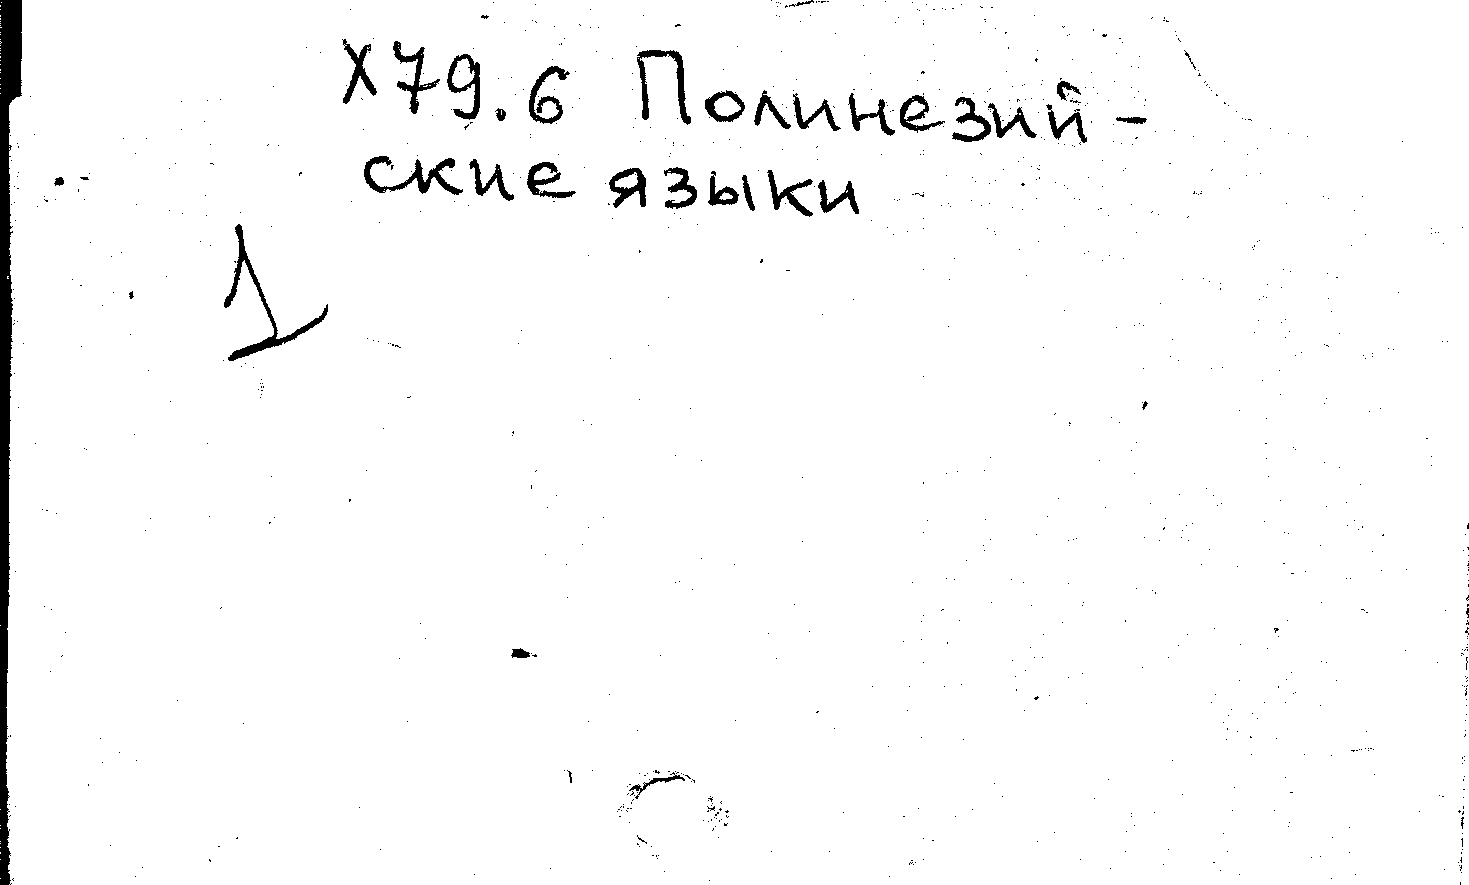 X79.6 Полинезий-
ские языки
1